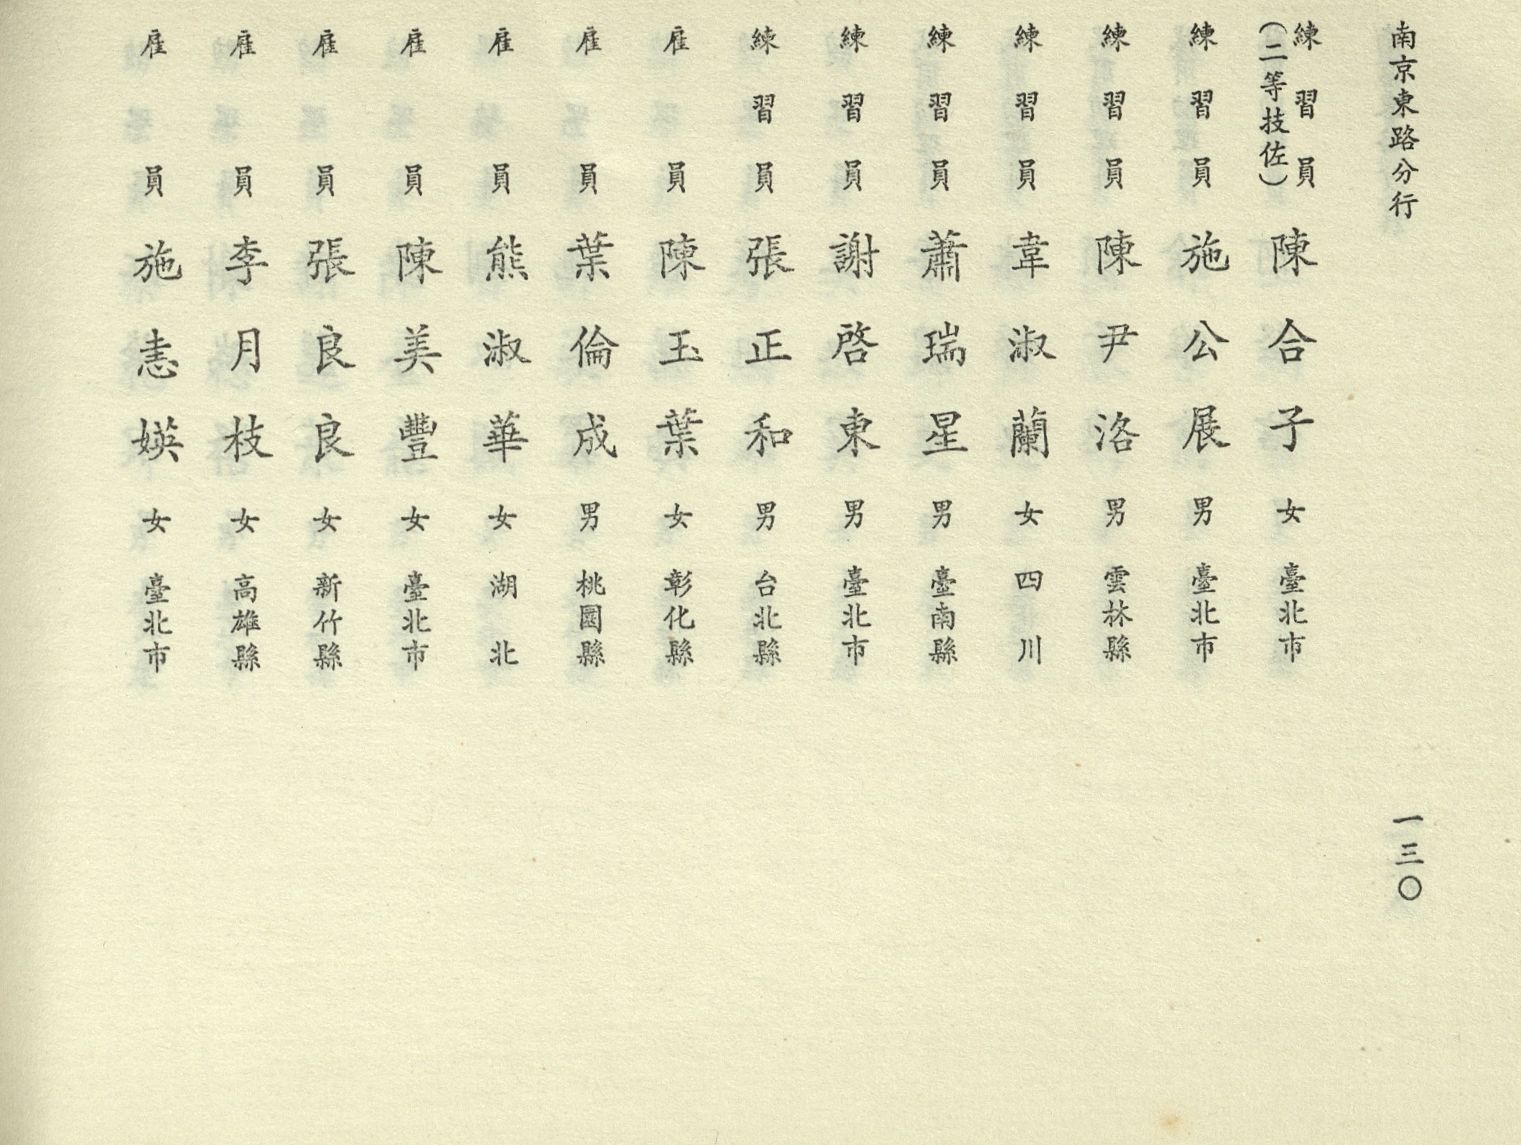 南京東路分行 一三〇
練習員(二等技佐) 陳合子 女 臺北市
練習員 施公展 男 臺北市
練習員 陳尹洛 男 雲林縣
練習員 韋淑蘭 女 四川
練習員 蕭瑞星 男 臺南縣
練習員 謝啓東 男 臺北市
練習員 張正和 男 台北縣
雇員 陳玉葉 女 彰化縣
雇員 葉倫成 男 桃園縣
雇員 熊淑華 女 湖北
雇員 陳美豐 女 臺北市
雇員 張良良 女 新竹縣
雇員 李月枝 女 高雄縣
雇員 施恚媖 女 臺北市